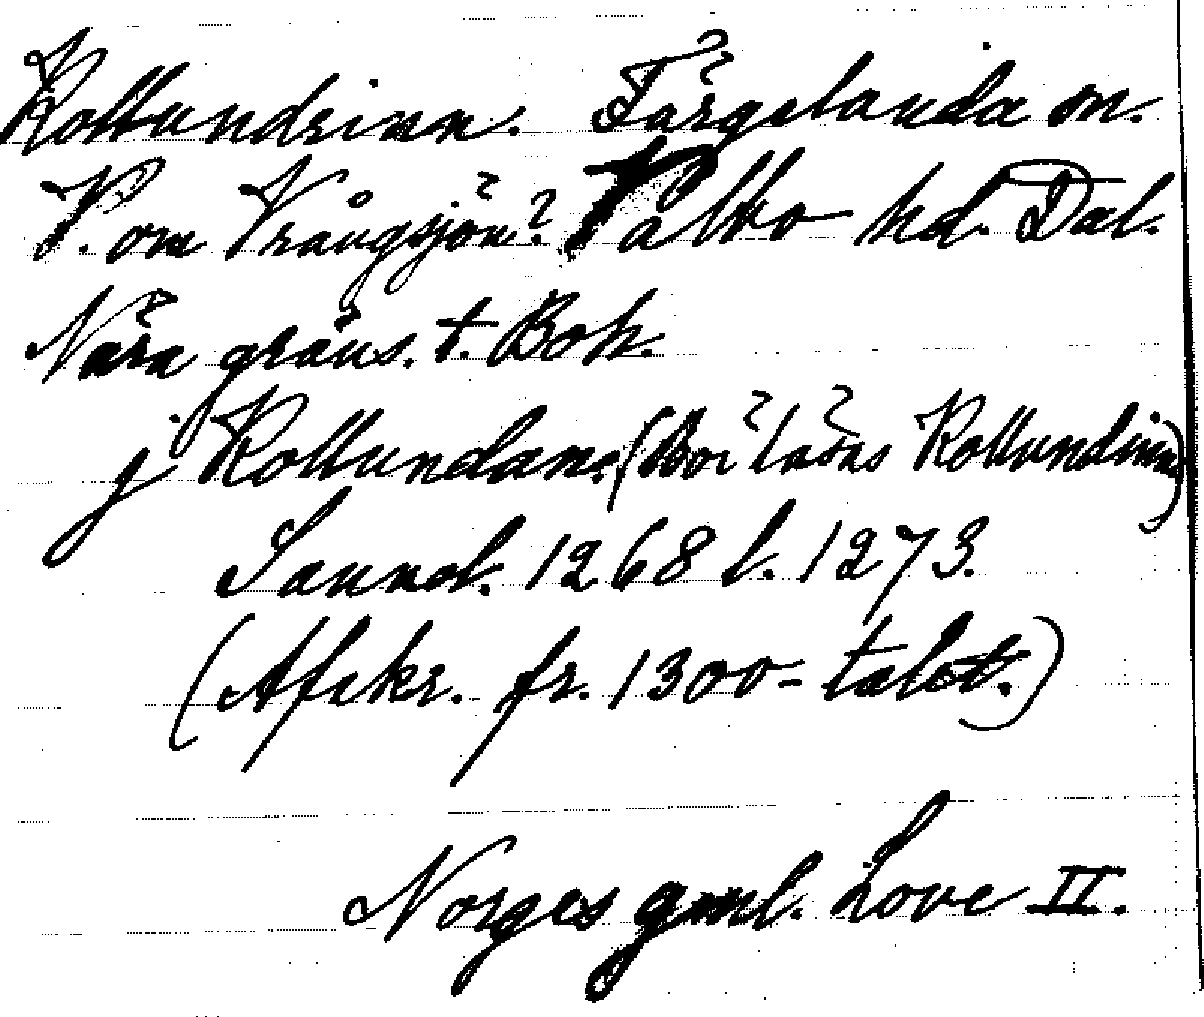 Kollundrinn. Färgelanda sn.
V. om Vrångsjön? Valbo hd. Dal.
Nära gräns. t. Boh.
j Kollundan. (Bör läsas Kollundinn)
Sannol. 1268 l. 1273.
(Afskr. fr. 1300-talet.)
Norges gml. Love II.